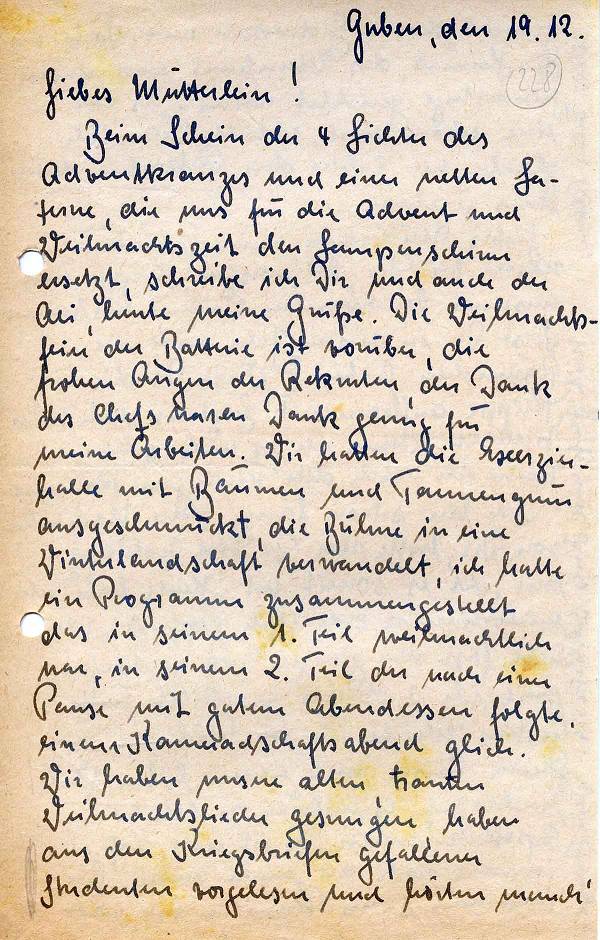 Guben, den 19.12.
(228)
Liebes Mütterlein!
Beim Schein der 4 Lichter des
Adventkranzes und einer netten La-
terne, die uns für die Advent und
Weihnachtszeit den Lampenschirm
ersetzt, schreibe ich Dir und auch der
Aei, bunte meine Grüße. Die Weihnachts-
feier der Batterie ist vorüber, die
frohen Augen der Rekruten, der Dank
des Chefs waren Dank genug für
meine Arbeiten. Wir hatten die Exerzier-
halle mit Bäumen und Tannengrün
ausgeschmückt, die Bühne in eine
Winterlandschaft verwandelt, ich hatte
ein Programm zusammengestellt
das in seinem 1. Teil weihnachtlich
war, in seinem 2. Teil der nach einer
Pause mit gutem Abendessen folgte,
einem Kameradschaftsabend glich.
Wir haben unsere alten trauten
Weihnachtslieder gesungen, haben
aus den Kriegsbriefen gefallener
Studenten vorgelesen und hörten manch'